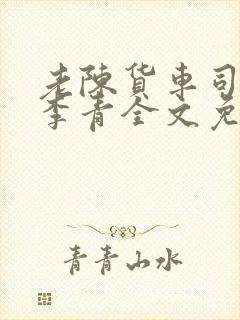 老陈货车司
李青全文免
青青山水